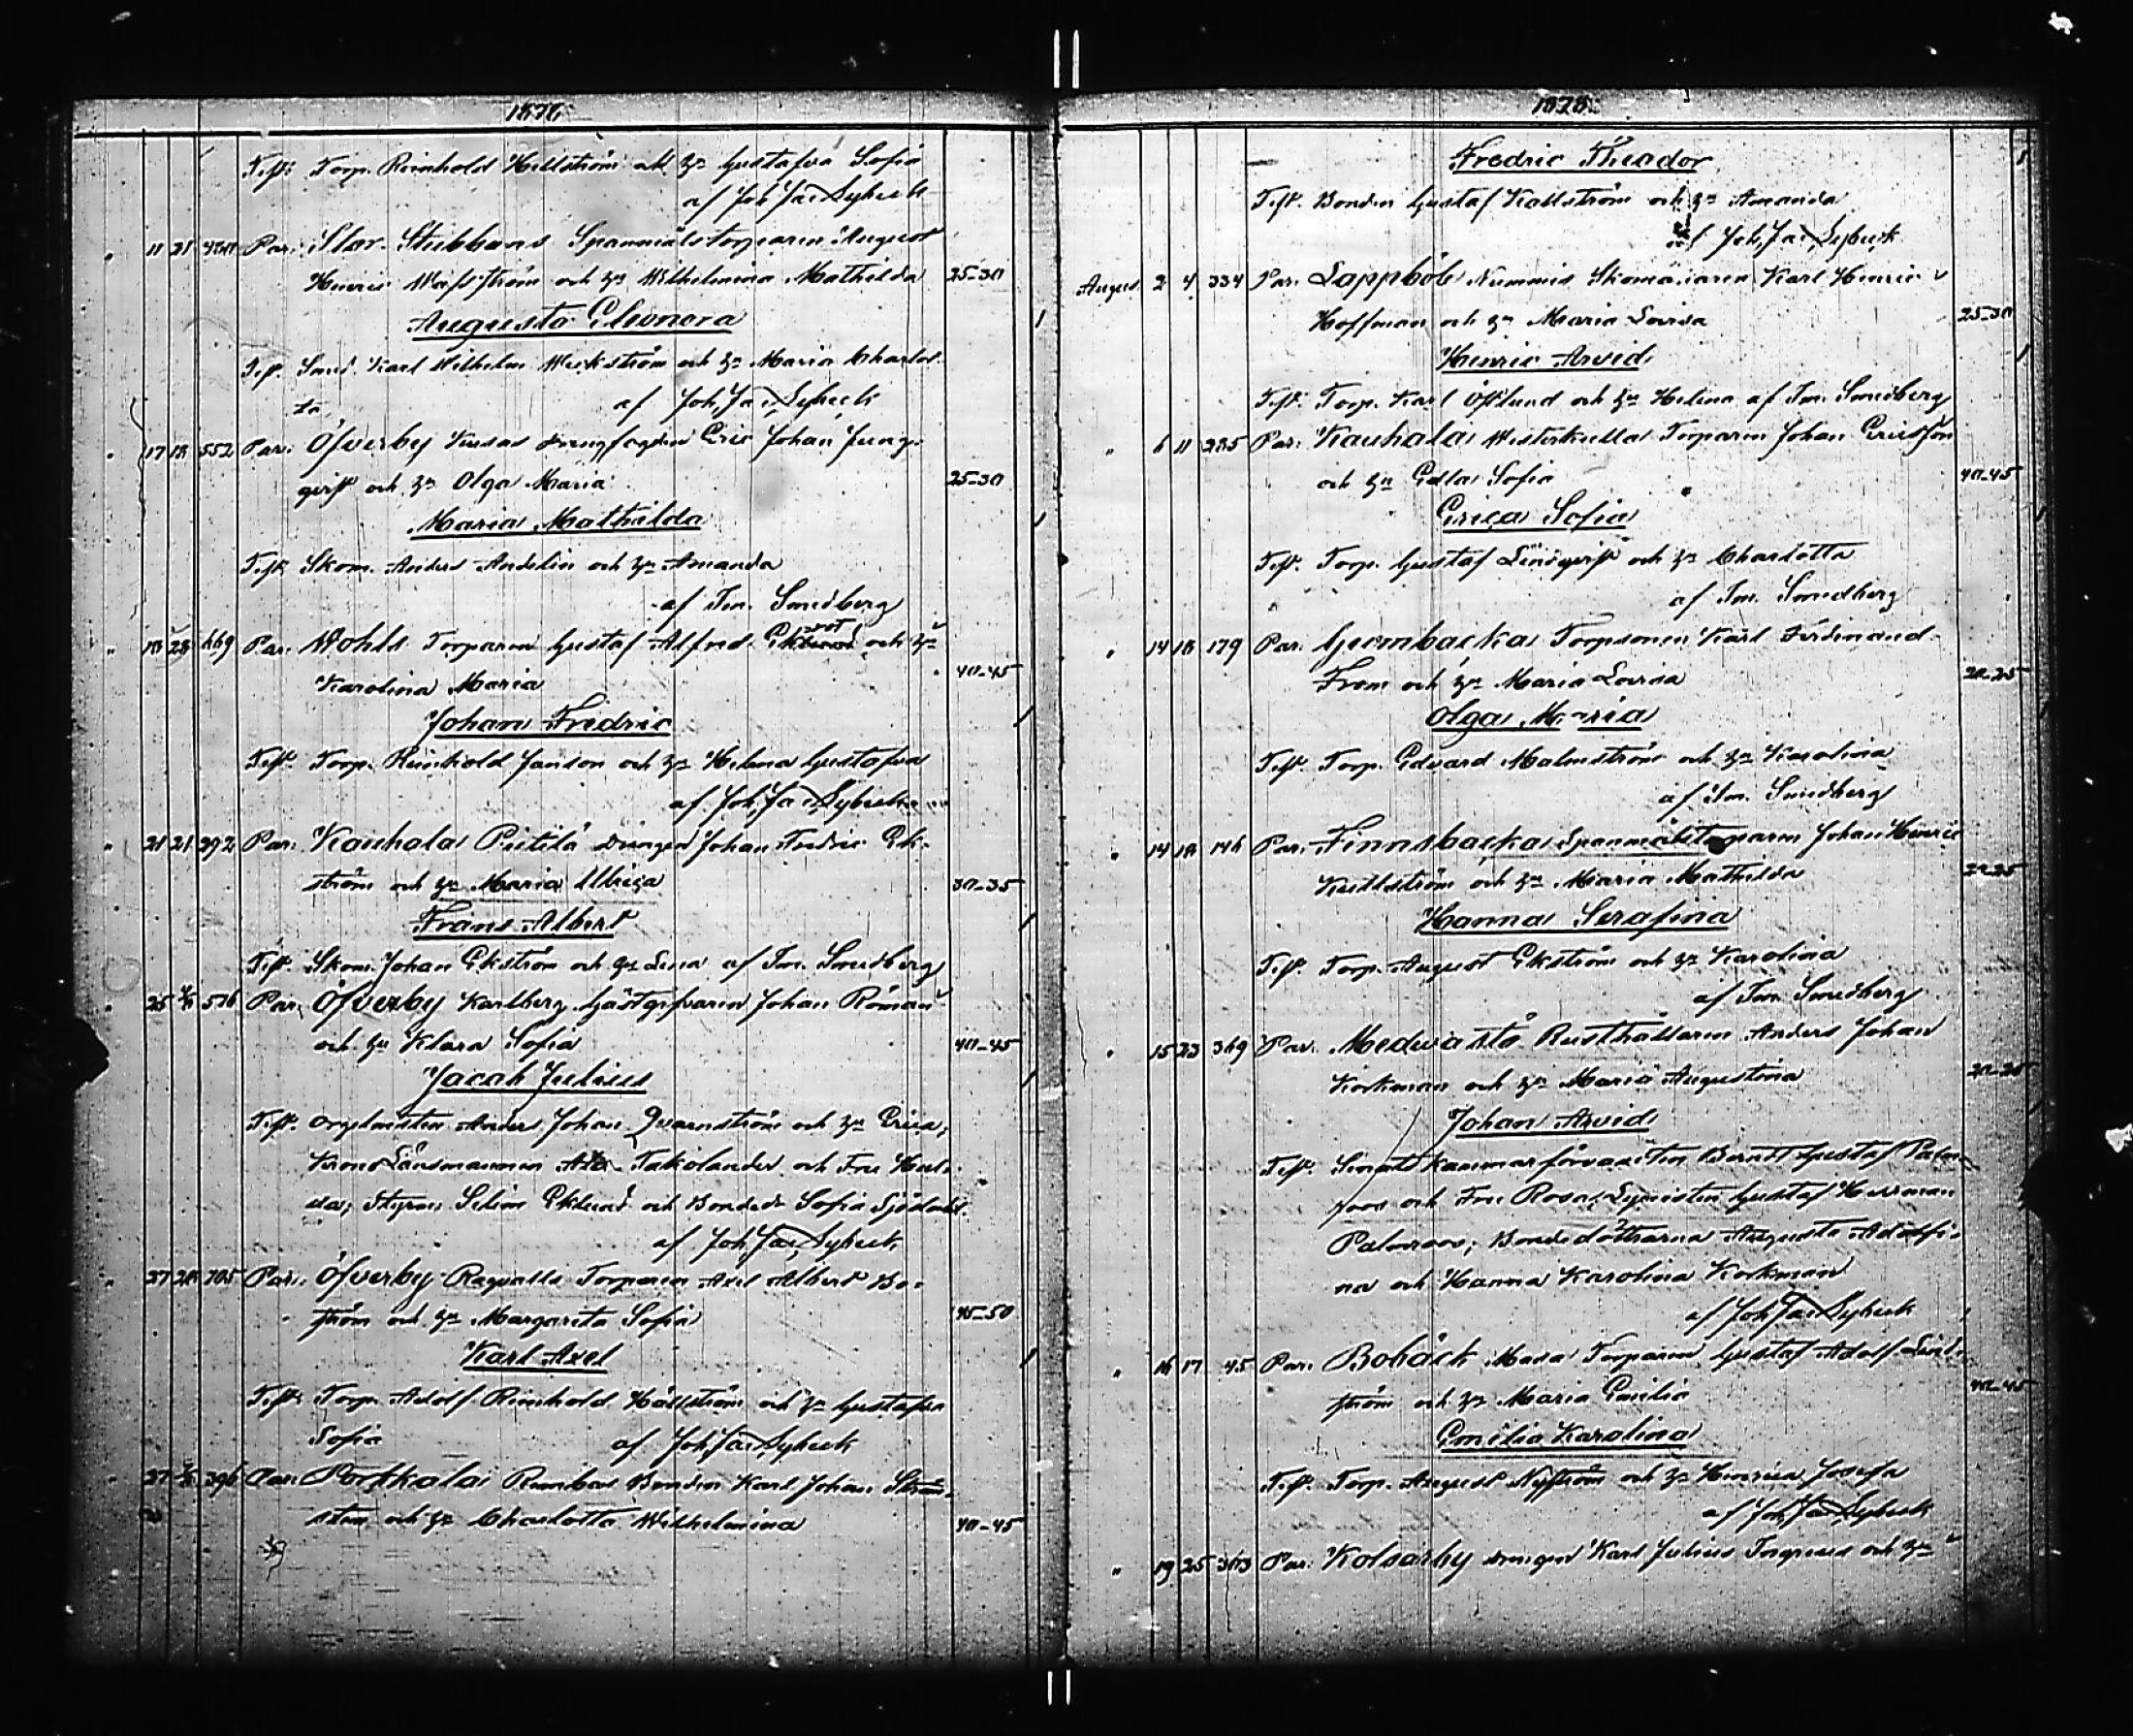 1878.
Test: Torp. Reinhold Hellström och h:u Gustafva Sofia
af Joh. Jac. Sybeck
" 11 21 Par: Stor-Stubbans Spanmålstorparen August
Henric Wafström och h:u Wilhelmina Mathilda 25-30
Augusta Eleonora
Test. Smed. Karl Wilhelm Weckström och h:u Maria Charlot-
ta. af Joh. Jac. Sybeck
" 17 18 552 Par: Öfverby Drengfogden Eric Johan Jung-
qvist och h:u Olga Maria 25-30
Maria Mathilda
Test. Skom. Anders Andelin och h:u Amanda
af Im. Smedberg
" 18 28 669 Par: Wohls Torparen Gustaf Alfred och h:u
Karolina Maria 40-45
Johan Fredric
Test. Torp. Reinhold Janson och h:u Helena Gustafva
af Joh. Jac. Sybeck
" 21 21 392 Par: Kauhala Pietilä Drengen Johan Fredric Ek-
ström och h:u Maria Ulrica 30-35
Frans Albert
Test. Skom. Johan Ekström och h:u Lena af Im. Smedberg
" 25 576 Par: Öfverby Karlberg Gästgifvaren Johan Roman
och h:u Klara Sofia 40-45
Jacob Julius
Test. Orgelnisten Anders Johan Qvarnström och h:u Erica,
Krono Länsmannen Takolander och Fru Hul-
da; Styrm. Selim Eklund och Bonded. Sofia Sjölund.
af Joh. Jac. Sybeck
" 27 28 705 Par: Öfverby Ragvalls Torparen Axel Albert Bo-
ström och h:u Margareta Sofia 45-50
Karl Axel
Test: Torp. Adolf Reinhold Hällström och h:u Gustafva
Sofia af Joh. Jac. Sybeck
" 27 396 Par: Porkkala Rambas Bonden Karl Johan
och h:u Charlotta Wilhelmina 40-45
1878.
Fredric Theodor
Test. Bonden Gustaf Kallström och h:u Amanda
af Joh. Jac. Sybeck
August 2 4 334 Par: Lappböle Nummis Skomakaren Karl Henric
Hoffman och h:u Maria Lovisa 25-30
Henric Arvid
Test. Torp. Karl Östlund och h:u Helena af Im. Smedberg
" 6 11 285 Par: Kauhala Westerkulla Torparen Johan Ericsson
och h:u Edla Sofia 40-45
Erica Sofia
Test. Torp. Gustaf Lindqvist och h:u Charlotta
af Im. Smedberg
" 14 18 179 Par: Gumbacka Torpsonen Karl Ferdinand
From och h:u Maria Lovisa 20-25
Olga Maria
Test. Torp. Edvard Malmström och h:u Karolina
af Im. Smedberg
" 14 18 146 Par: Finnsbacka Spanmålstorparen Johan Henric
och h:u Maria Mathilda
Hanna Serafina
Test. Torp. August Ekström och h:u Karolina
af Im. Smedberg
" 15 23 369 Par: Medvastö Rusthållaren Anders Johan
Korkman och h:u Maria Augustina
Johan Arvid
Test. Senatskammarförvanten Berndt Gustaf Palm-
roos och Fru Rosa; Lyceisten Gustaf Herrman
Palmroos; Bondedöttrarna Augusta Adolfi-
na och Hanna Karolina Korkman
af Joh. Jac. Sybeck
" 16 17 45 Par: Bobäck Masa Torparen Gustaf Adolf Lind-
ström och h:u Maria Emilia 40-45
Emilia Karolina
Test. Torp. August Nyström och h:u Henrica Josefa
af Joh. Jac. Sybeck
" 19 25 Par: Kolsarby Drengen Karl Julius Torgrens och h:u